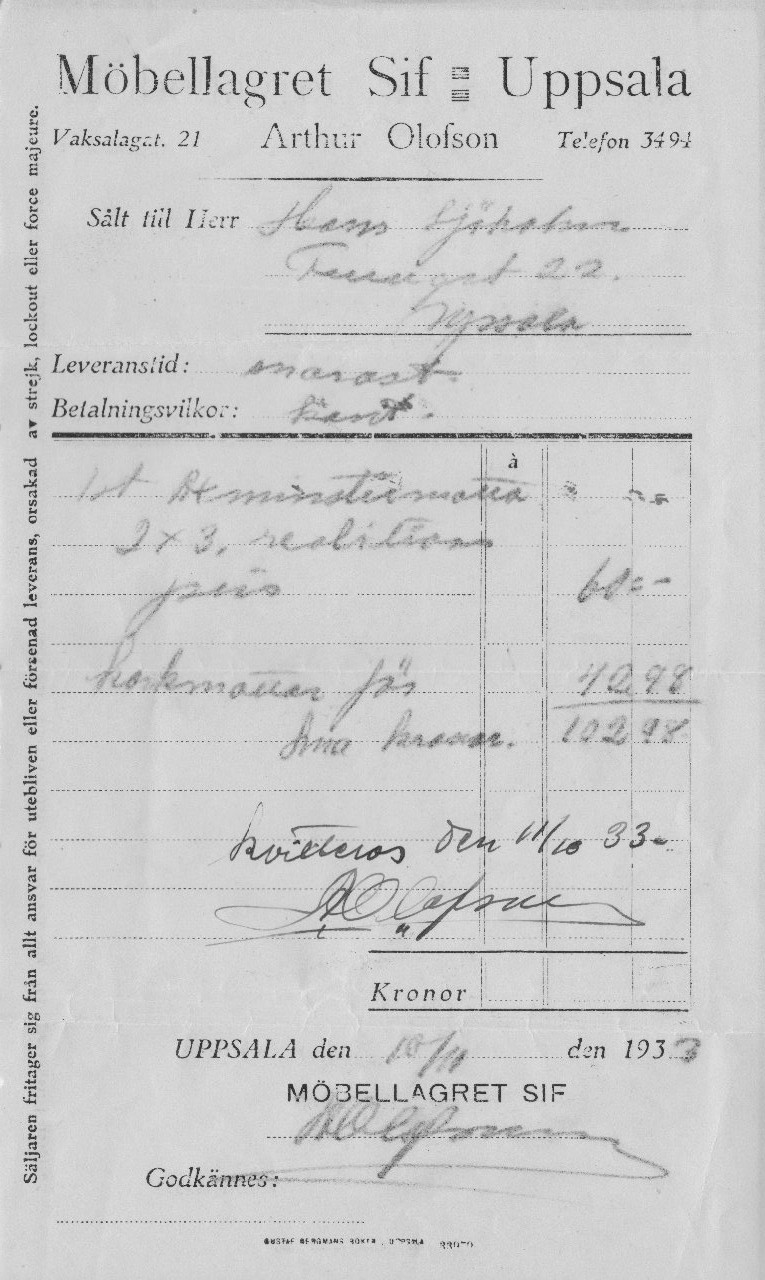 Möbellagret Sif Uppsala
Vaksalagat. 21 Arthur Olofson Telefon 3494
Sålt till Herr Hans Sjöholm
22.
Upsala
Leveranstid: snarast.
Betalningsvilkor: kont.
à
1 st Axminstermatta
2 x 3, realitions
pris 60=-
korkmattor för 42 98
kronor. 102 98
kvitteras den 11/10 33-
A Olofson
Kronor
UPPSALA den 10/11 den 1933
MÖBELLAGRET SIF
A Olofson
Godkännes:
GUSTAF BERGMANS BOKTR., UPPSALA 33
Säljaren fritager sig från allt ansvar för utebliven eller försenad leverans, orsakad av strejk, lockout eller force majeure.